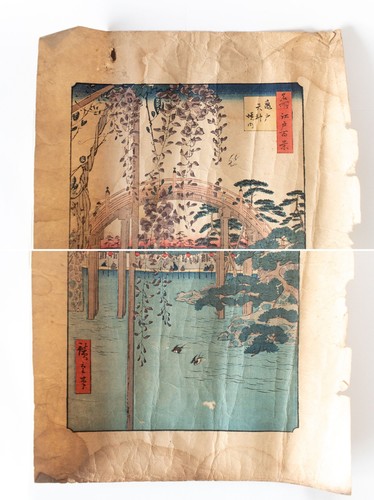 名所江戸百景
亀戸
天神
境内
廣重画